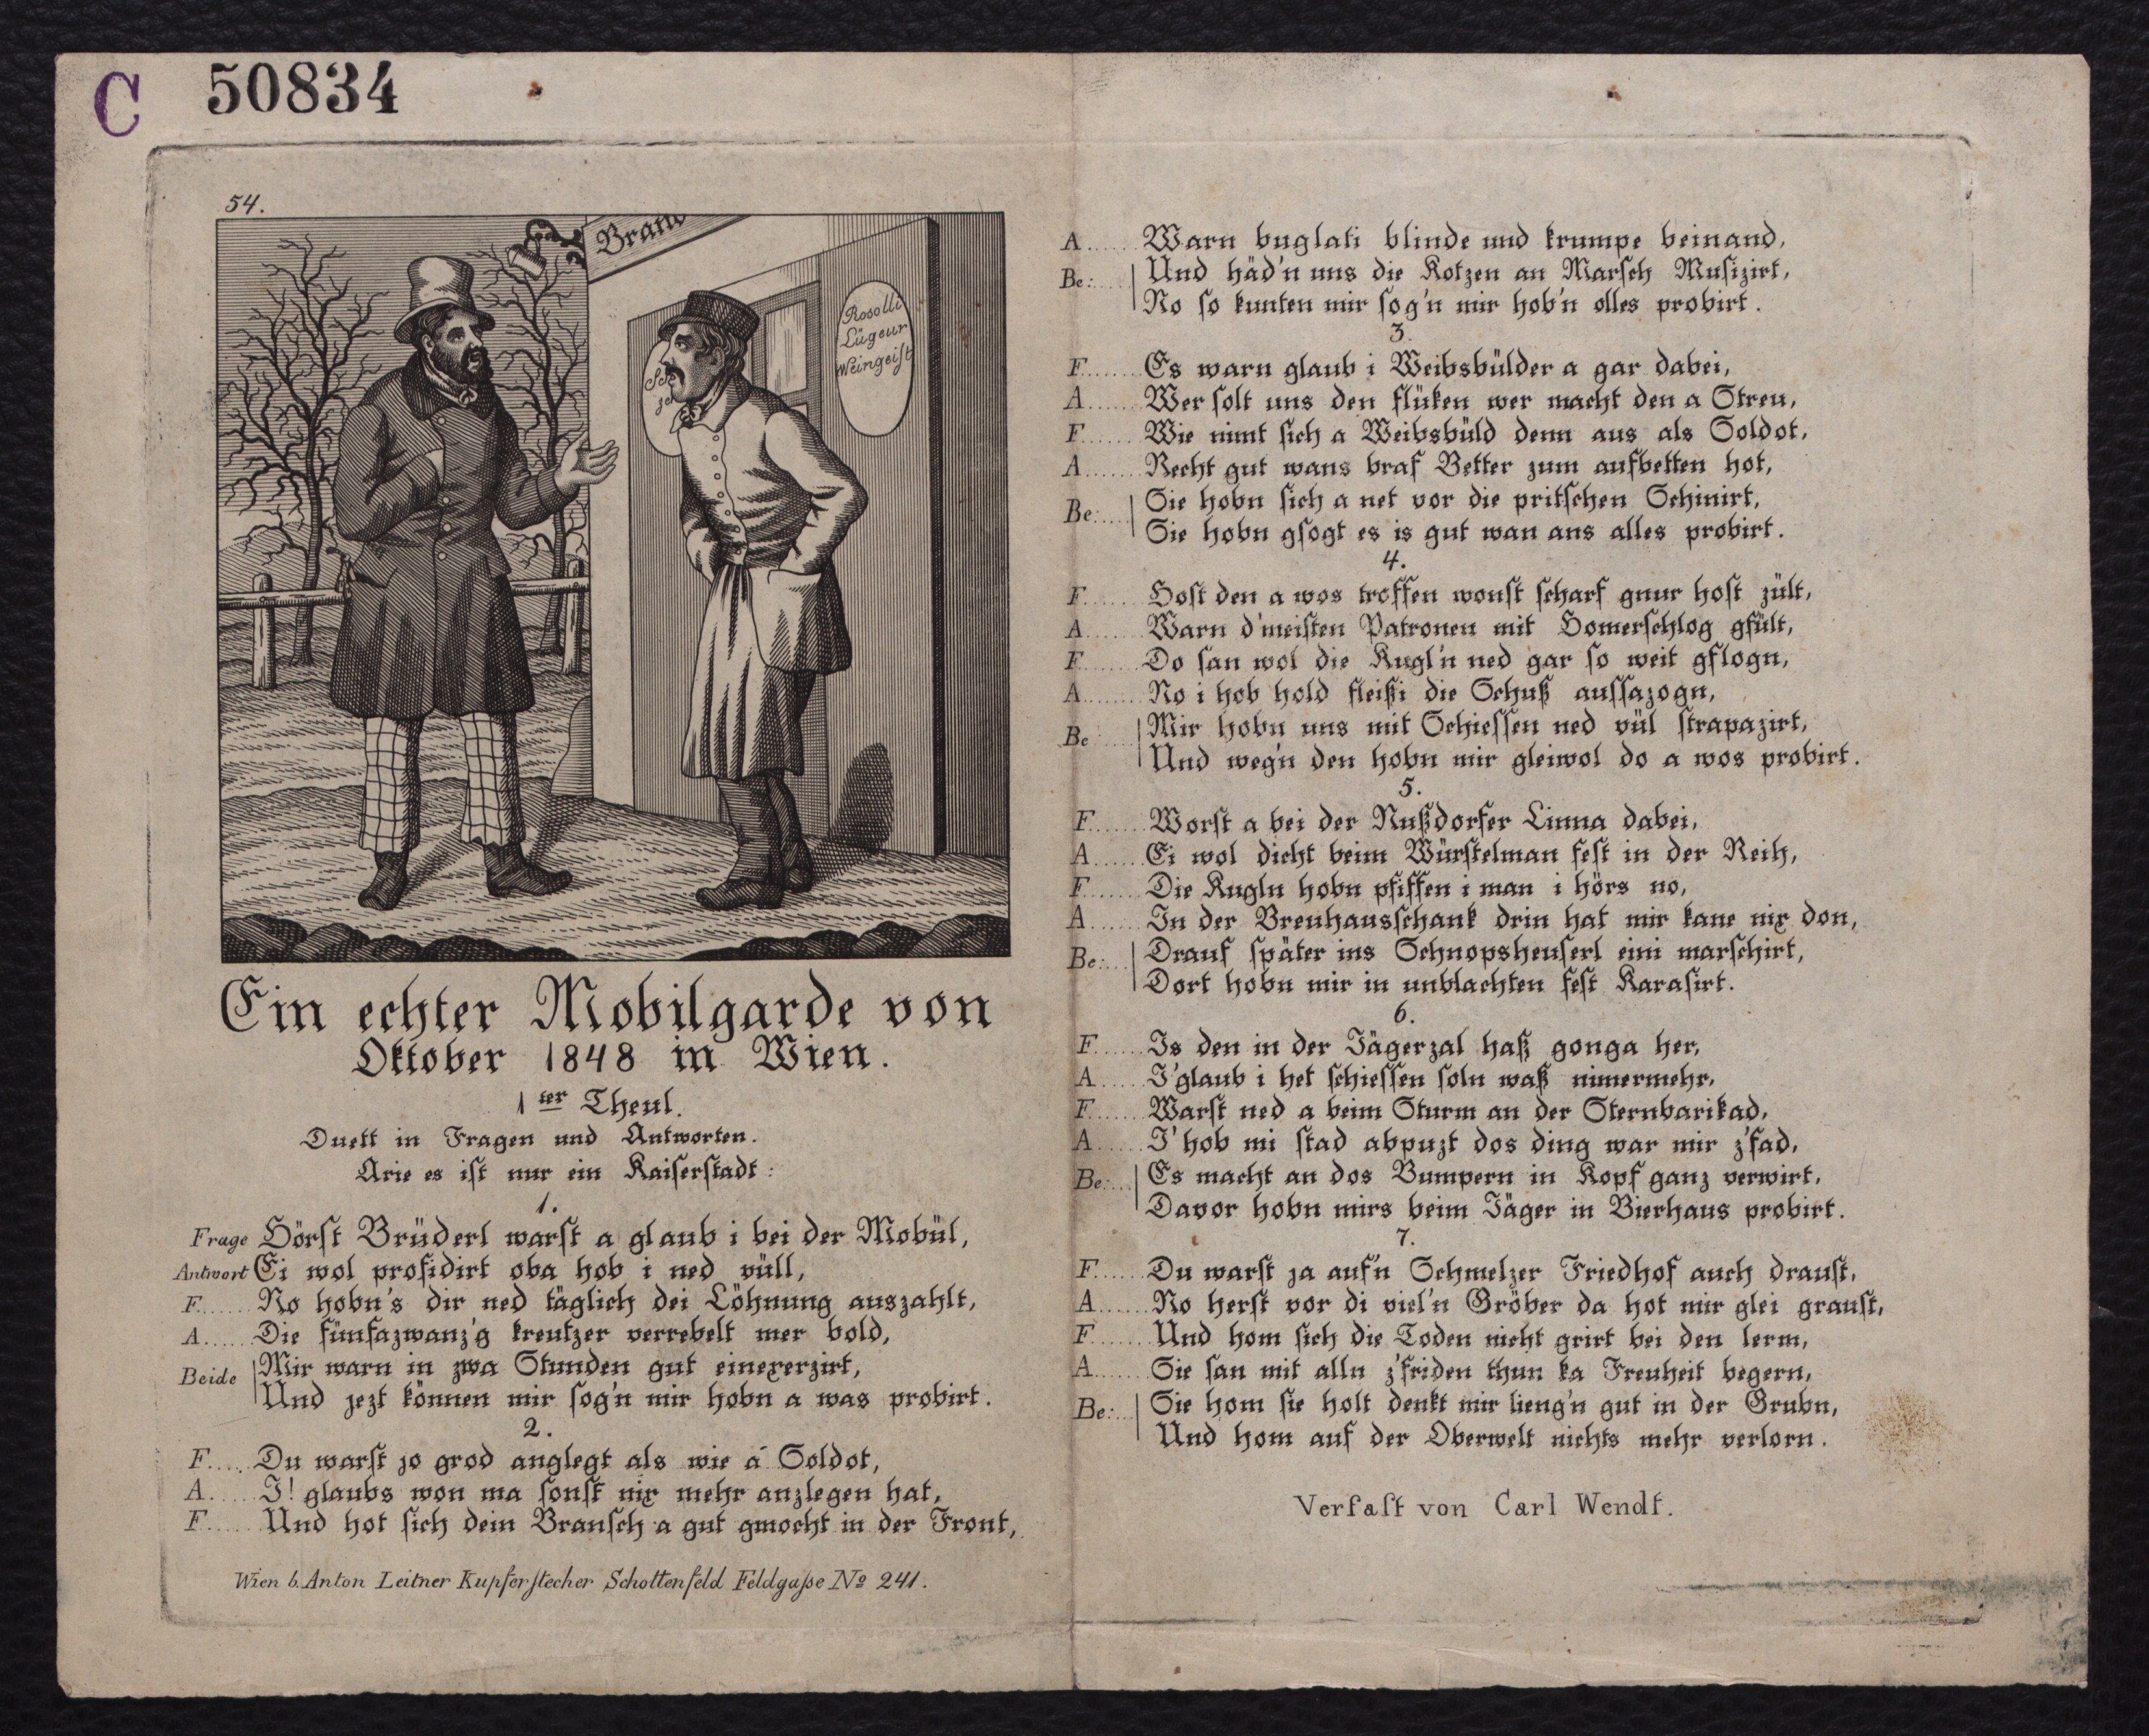 C 50834
54.
Bran
Rosolli
Lügeur
Weingeist
Ein echter Mobilgarde von
Oktober 1848 in Wien.
1ter Theul.
Duett in Fragen und Antworten.
Arie es ist nur ein Kaiserstadt:
1.
Frage Hörst Brüderl warst a glaub i bei der Mobül,
Antwort Ei wol profidirt oba hob i ned vüll,
F...... No hobn's dir ned täglich dei Löhnung auszahlt,
A..... Die fünfazwanz'g kreutzer verrebelt mer bold,
Beide Mir warn in zwa Stunden gut einexerzirt,
Und jezt können mir sog'n mir hobn a was probirt.
2.
F..... Du warst jo grod anglegt als wie a Soldot,
A..... I! glaubs won ma sonst nix mehr anzlegen hat,
F..... Und hot sich dein Bransch a gut gmocht in der Front,
Wien b. Anton Leitner Kupferstecher Schottenfeld Feldgasse No 241.
A...... Warn buglati blinde und krumpe beinand,
Be:.... Und häd'n uns die Kotzen an Marsch Musizirt,
No so kunten mir sog'n mir hob'n olles probirt.
3.
F...... Es warn glaub i Weibsbülder a gar dabei,
A...... Wer solt uns den flüken wer macht den a Streu,
F...... Wie nimt sich a Weibsbüld denn aus als Soldot,
A...... Recht gut wans braf Better zum aufbetten hot,
Be:.... Sie hobn sich a net vor die pritschen Schinirt,
Sie hobn gsogt es is gut wan ans alles probirt.
4.
F...... Host den a wos troffen wonst scharf gnur host zült,
A...... Warn d'meisten Patronen mit Homerschlog gfült,
F...... Do san wol die Kugl'n ned gar so weit gflogn,
A...... No i hob hold fleißi die Schuß aussazogn,
Be.... Mir hobn uns mit Schiessen ned vül strapazirt,
Und weg'n den hobn mir gleiwol do a wos probirt.
5.
F...... Worst a bei der Nußdorfer Linna dabei,
A...... Ei wol dicht beim Würstelman fest in der Reih,
F...... Die Kugln hobn pfiffen i man i hörs no,
A...... In der Breuhausschank drin hat mir kane nix don,
Be:.... Drauf später ins Schnopsheuserl eini marschirt,
Dort hobn mir in unblachten fest Karasirt.
6.
F...... Is den in der Jägerzal haß gonga her,
A...... I'glaub i het schiessen soln waß nimermehr,
F...... Warst ned a beim Sturm an der Sternbarikad,
A...... I' hob mi stad abpuzt dos ding war mir z'fad,
Be:.... Es macht an dos Bumpern in Kopf ganz verwirt,
Davor hobn mirs beim Jäger in Bierhaus probirt.
7.
F...... Du warst ja auf'n Schmelzer Friedhof auch draust,
A...... No herst vor di viel'n Gröber da hot mir glei graust,
F...... Und hom sich die Toden nicht grirt bei den lerm,
A...... Sie san mit alln z'friden thun ka Freuheit begern,
Be:.... Sie hom sie holt denkt mir lieng'n gut in der Grubn,
Und hom auf der Oberwelt nichts mehr verlorn.
Verfast von Carl Wendt.